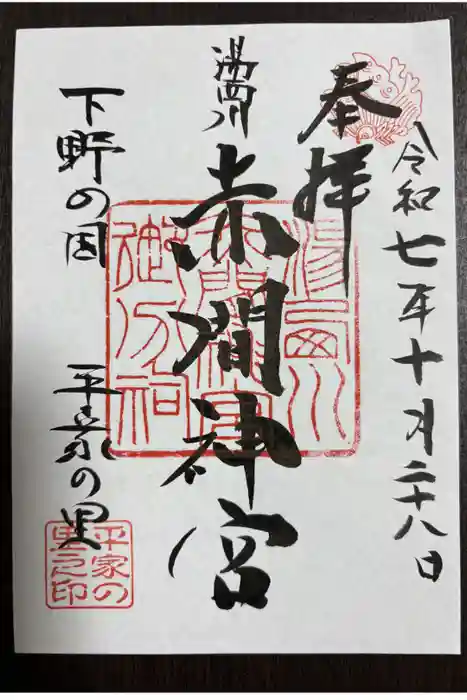 令和七年十月二十八日
奉拝
湯西川
赤間神宮
湯西川
赤間神宮
御分祠
下野の国 平家の里
平家の
里之印